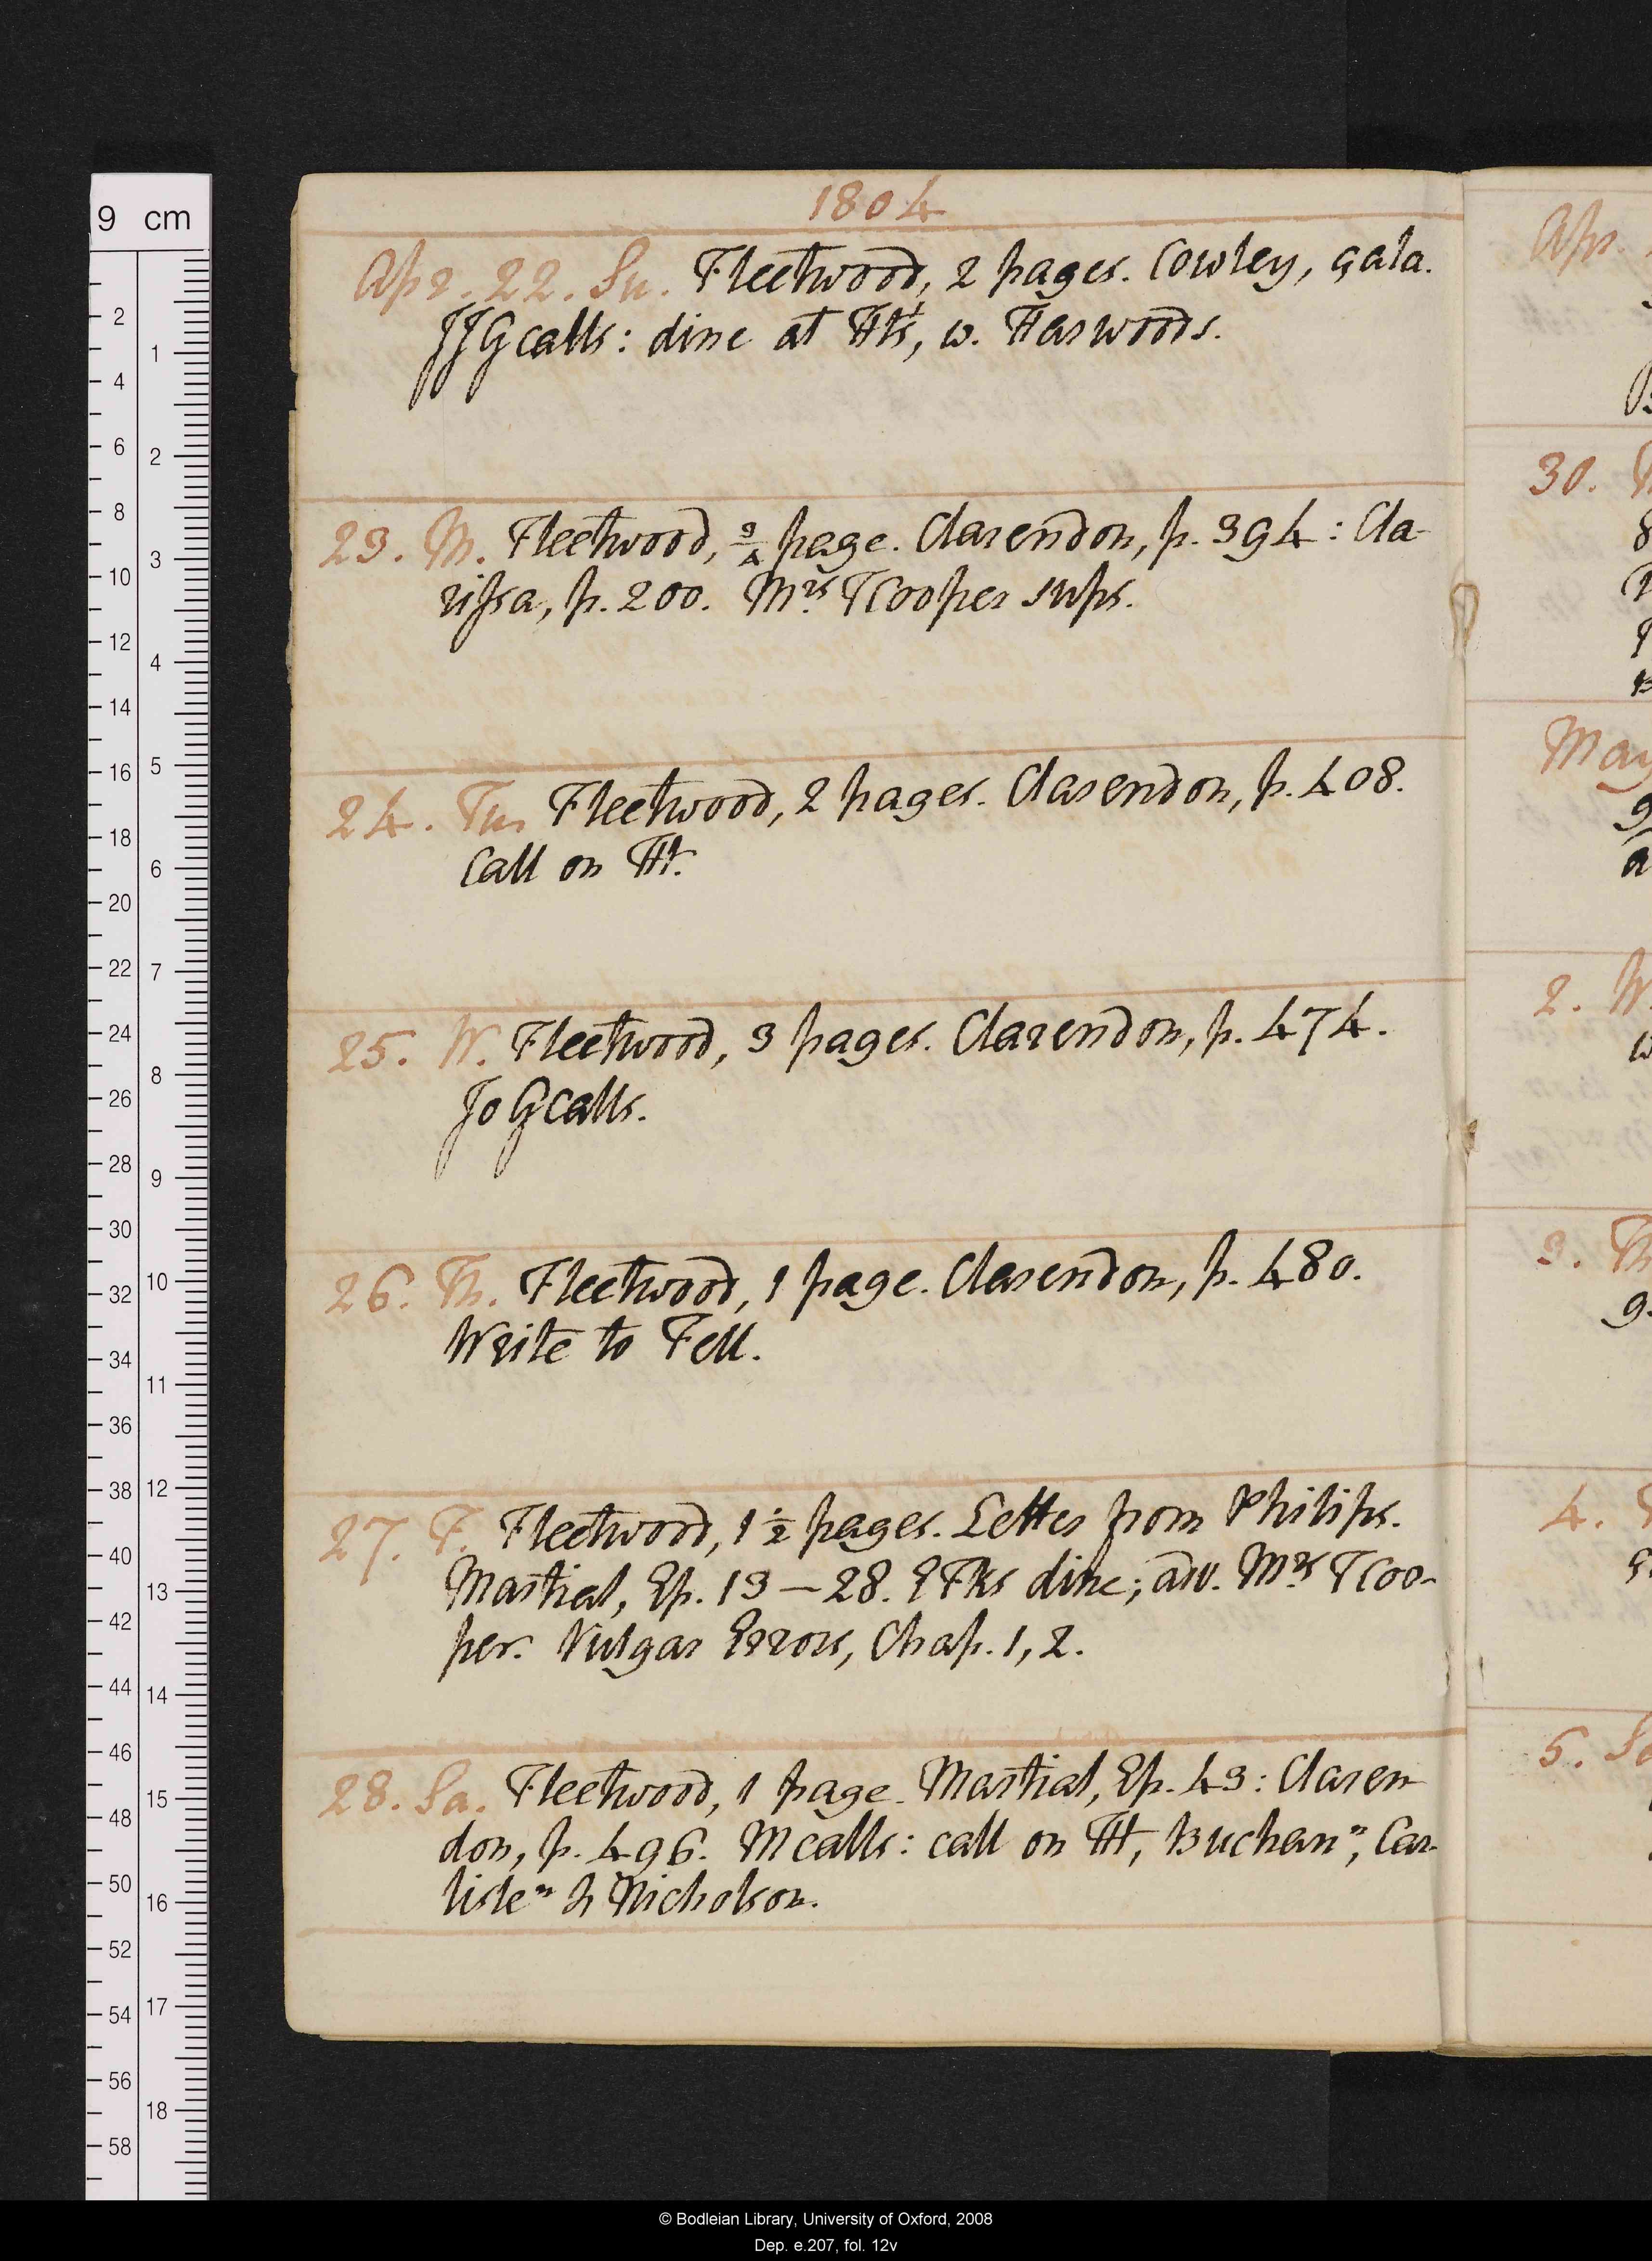 1804
Apr. 22. Su. Fleetwood, 2 pages. Cowley, gala.
JJG calls: dine at Ht's, w. Harwoods.
23. M. Fleetwood, 3/4 page. Clarendon, p. 394: Cla-
rissa, p. 200. Mrs TCooper sups.
24. Tu. Fleetwood, 2 pages. Clarendon, p. 408.
Call on Ht.
25. W. Fleetwood, 3 pages. Clarendon, p. 474.
Jo G calls.
26. Th. Fleetwood, 1 page. Clarendon, p. 480.
Write to Fell.
27. F. Fleetwood, 1 1/2 pages. Letter from Philips.
Martial, Ep. 13 — 28. E Fks dine; adv. Mrs TCoo-
per. Vulgar Errors, Chap. 1, 2.
28. Sa. Fleetwood, 1 page. Martial, Ep. 43: Claren-
don, p. 496. M calls: call on Ht, Buchan n, Car-
lisle n & Nicholson.
Apr.
30.
May
2. W
3. Th
4.
5. Sa
9 cm
2 4 6 8 10 12 14 16 18 20 22 24 26 28 30 32 34 36 38 40 42 44 46 48 50 52 54 56 58
1 2 3 4 5 6 7 8 9 10 11 12 13 14 15 16 17 18
© Bodleian Library, University of Oxford, 2008
Dep. e.207, fol. 12v